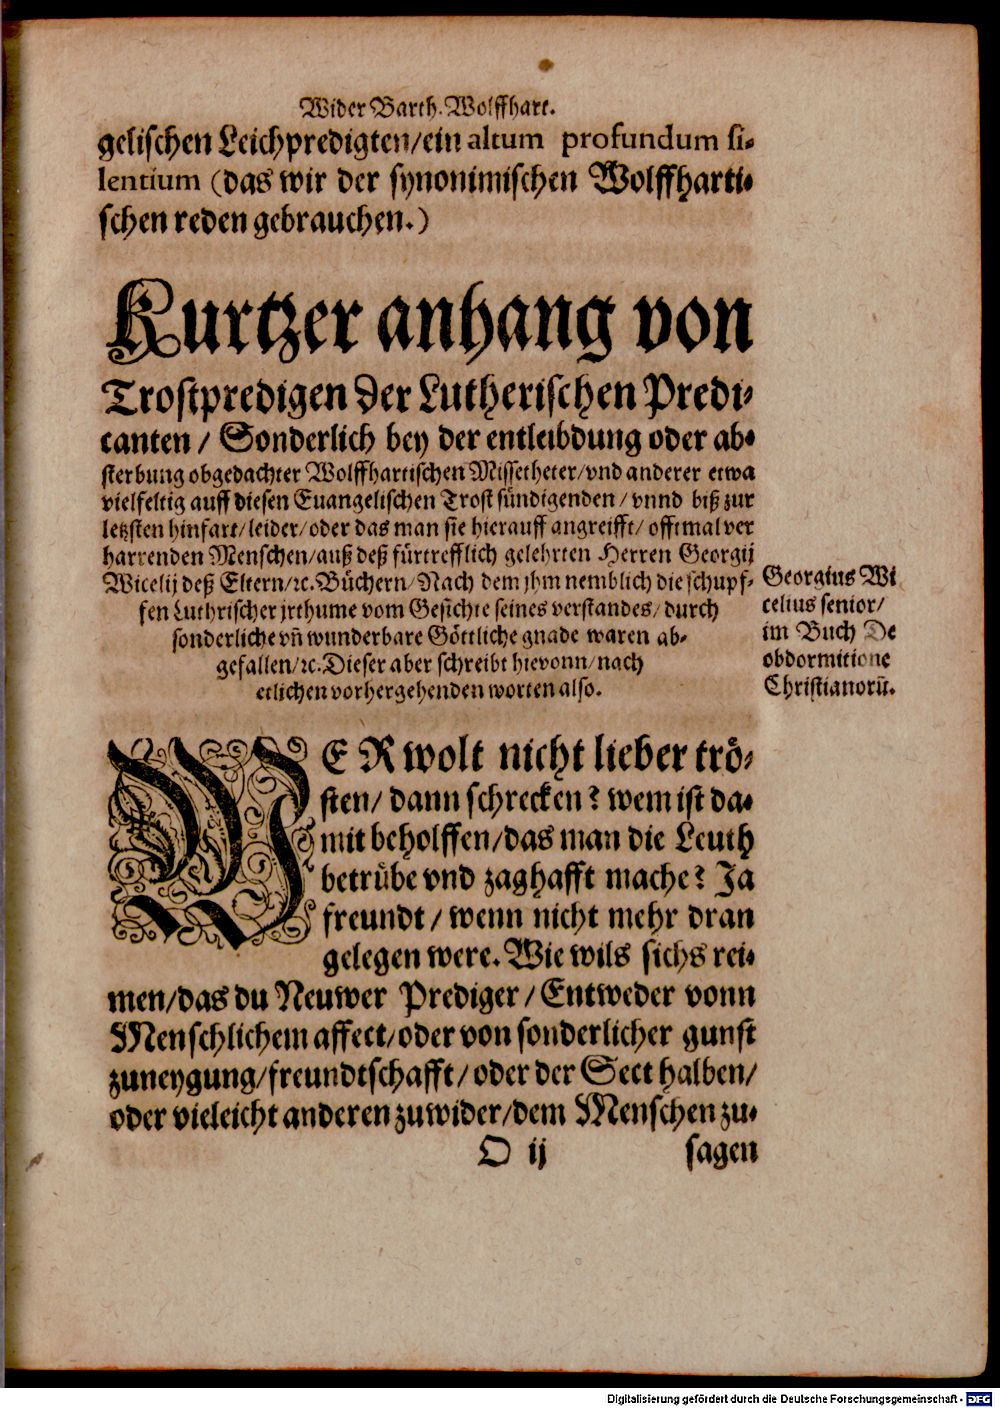 Wider Barth. Wolffhart.
gelischen Leichpredigten/ein altum profundum si-
lentium (das wir der synonimischen Wolffharti-
schen reden gebrauchen.)
Kurtzer anhang von
Trostpredigen der Lutherischen Predi-
canten / Sonderlich bey der entleibdung oder ab-
sterbung obgedachter Wolffhartischen Missetheter/vnd anderer etwa
vielfeltig auff diesen Euangelischen Trost sündigenden / vnnd biß zur
letzsten hinfart/leider/oder das man sie hierauff angreifft/ offtmal ver
harrenden Menschen/auß deß fürtrefflich gelehrten Herren Georgij
Wicelij deß Eltern/ꝛc. Büchern/Nach dem jhm nemblich die schupf-
fen Luthrischer jrthume vom Gesichte seines verstandes/durch
sonderliche vñ wunderbare Göttliche gnade waren ab-
gefallen/ꝛc. Dieser aber schreibt hievonn/nach
etlichen vorhergehenden worten also.
Georgius Wi
celius senior/
im Buch De
obdormitione
Christianorũ.
WER wolt nicht lieber trö-
sten/ dann schrecken? wem ist da-
mit beholffen/das man die Leuth
betrübe vnd zaghafft mache? Ja
freundt / wenn nicht mehr dran
gelegen were. Wie wils sichs rei-
men/das du Neuwer Prediger / Entweder vonn
Menschlichem affect/oder von sonderlicher gunst
zuneygung/freundtschafft/oder der Sect halben/
oder vieleicht anderen zuwider/dem Menschen zu-
O ij sagen
Digitalisierung gefördert durch die Deutsche Forschungsgemeinschaft - DFG